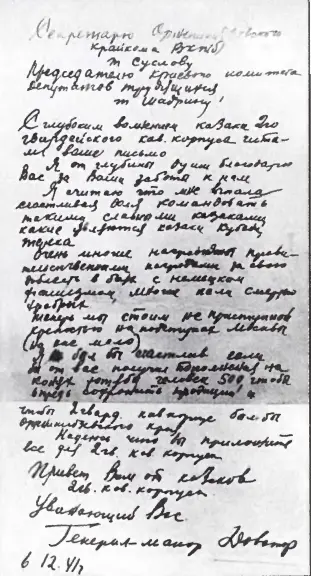 Секретарю Орджоникидзевского
крайкома ВКП(б)
т Суслову
Председателю краевого комитета
депутатов трудящихся
т Шадрину!
С глубоким волнением казаки 2го
гвардейского кав. корпуса чита-
ли ваше письмо
Я от глубины души благодарю
Вас за Ваши заботы к нам
Я считаю что мне выпала
счастливая доля командовать
такими славными казаками
какие являются казаки Кубани,
Терека
Очень многие награждены прави-
тельственными наградами за свою
доблесть в боях с немецким
фашизмом, многие пали смертью
храбрых
Теперь мы стоим неприступной
крепостью на подступах Москвы
(но нас мало)
Я был бы счастлив если
бы от вас получил пополнение на
конях человек 500, чтобы
впредь
чтобы 2 гвард. кав корпус был бы
орджоникидзевского края
Надеюсь что вы приложите
все для 2 гв. кав корпуса
Привет Вам от казаков
2 гв. кав. корпуса.
Уважающий Вас
Генерал-майор Доватор
6 12. 41 г